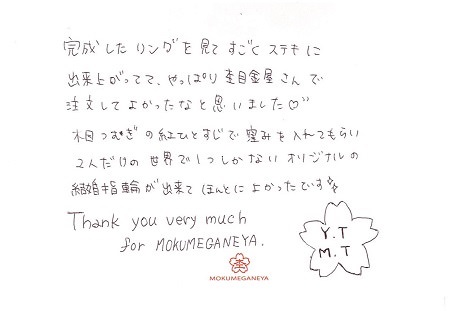 完成した リングを見て すごく ステキに
出来上がってて、やっぱり 杢目金屋 さんで
注文して よかったなと思いました♡
木目つむぎの紅ひとすじで窪みを入れてもらい
2人だけの世界で1つしかない オリジナルの
結婚指輪が出来て ほんとに よかったです
Thank you very much
for MOKUMEGANEYA.
Y.T
M.T
MOKUMEGANEYA